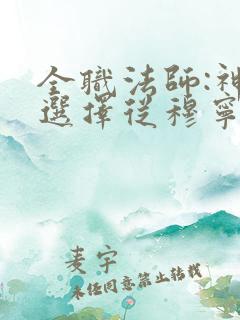 全職法師:神
選擇從穆寧
麦宇
未经同意禁止转载